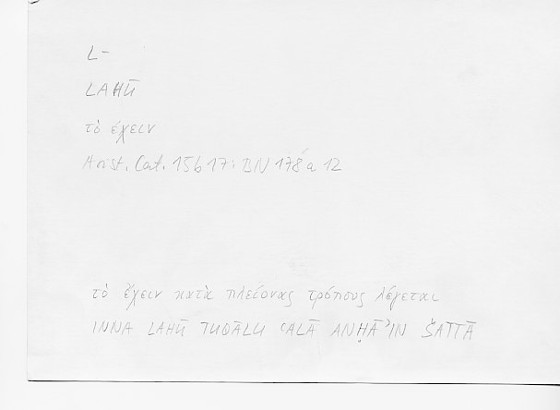 L-
LAHŪ
τὸ ἔχειν
Arist. Cat. 15b17: BN 178a 12
τὸ ἔχειν κατὰ πλείονας τρόπους λέγεται
INNA LAHŪ TUQĀLU ʿALĀ ANḤĀʾIN ŠATTĀ